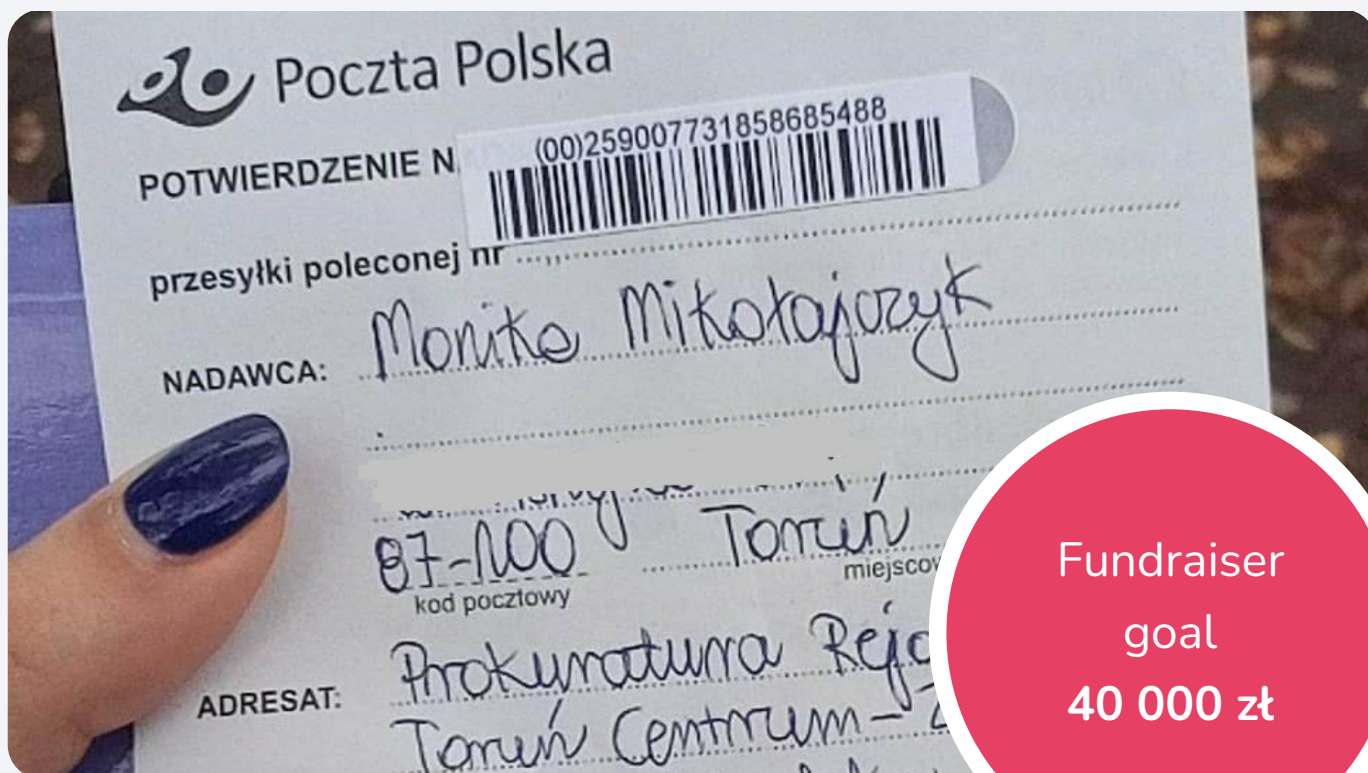 Poczta Polska
(00)259007731858685488
POTWIERDZENIE N
przesyłki poleconej nr
NADAWCA: Monika Mikołajczyk
87-100 Toruń
kod pocztowy miejscow
ADRESAT: Prokuratura Rejo
Toruń Centrum -
Fundraiser
goal
40 000 zł